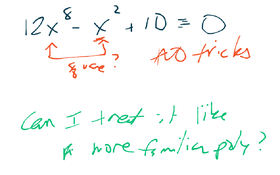 12x⁸ - x² + 10 = 0
no tricks
Can I treat it like
a more familiar poly?